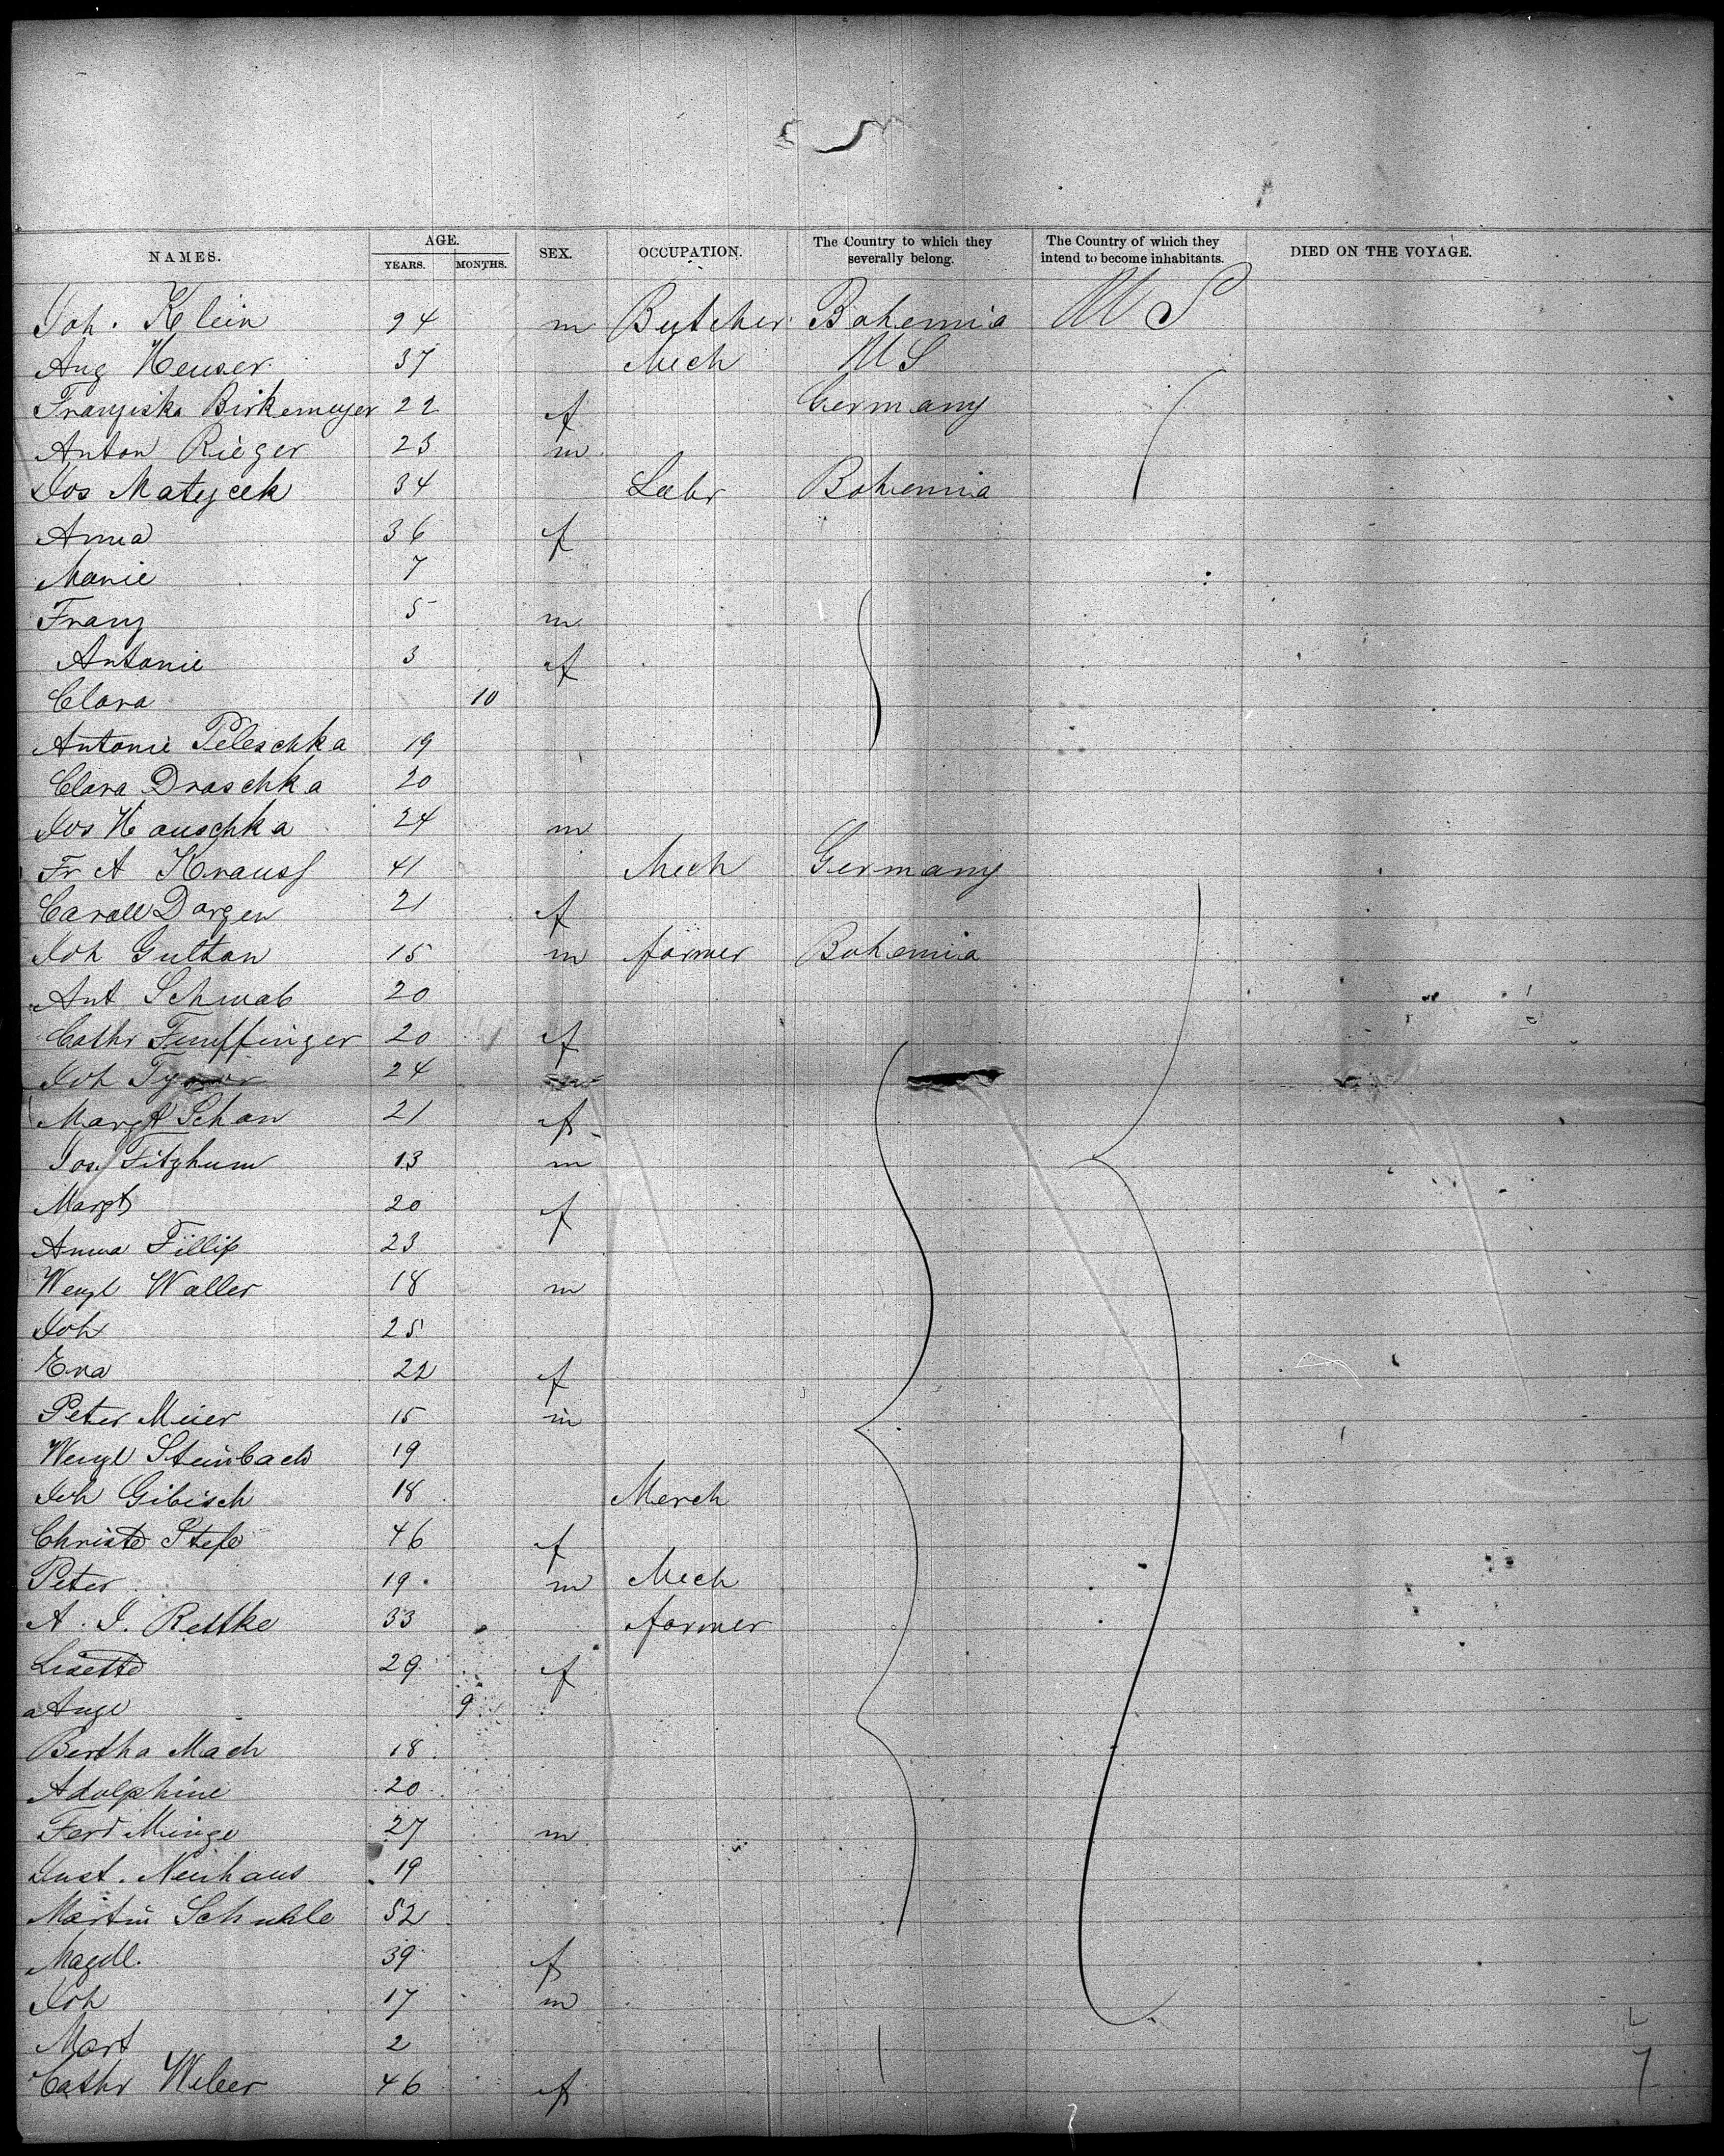 NAMES. AGE. YEARS. MONTHS. SEX. OCCUPATION. The Country to which they severally belong. The Country of which they intend to become inhabitants. DIED ON THE VOYAGE.
Joh. Klein 24 m Butcher Bohemia U S
Aug Heuser 37 Mech U S
Franziska Birkemeyer 22 f Germany
Anton Rieger 23 m
Jos Matejcek 34 Labr Bohemia
Anna 36 f
Marie 7
Franz 5 m
Antonie 3 f
Clara 10
Antonie Peleschka 19
Clara Draschka 20
Jos Hauschka 24 m
Fr A Krauss 41 Mech Germany
Caroll Dorgen 21 f
Joh Gultan 15 m farmer Bohemia
Ant Schwab 20
Cathr Fünffinger 20 f
Joh 24 m
Margt Schan 21 f
Jos. Fitzhum 13 m
Margt 20 f
Anna Fillip 23
Wenzl Waller 18 m
Joh 25
Eva 22 f
Peter Meier 15 m
Wenzl Steinbach 19
Joh Gibisch 18 Merch
Christe 46 f
Peter 19 m Mech
A. J. Rettke 33 farmer
Lisette 29 f
Auge 9
Bertha Mach 18
Adolphine 20
Ferd Minge 27 m
Just. Neuhaus 19
Martin Schukle 52
Magdl. 39 f
Joh 17 m
Mart 2
Cathr Weber 46 f
7